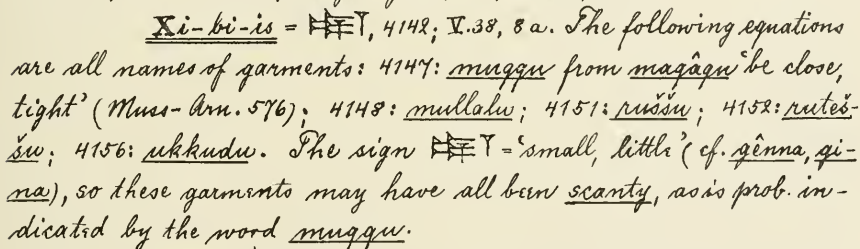 Xi-bi-is = 𒌉, 4142; V.38, 8a. The following equations
are all names of garments: 4147: muqqu from maqâqu 'be close,
tight' (Muss-Arn. 576); 4148: mullalu; 4151: ruššu; 4152: ruteš-
šu; 4156: ukkudu. The sign = 'small, little' (cf. gênna, gi-
na), so these garments may have all been scanty, as is prob. in-
dicated by the word muqqu.